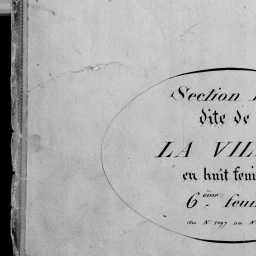 Section
dite de
LA VIL
en huit feui
6ème feui
du N° 1097 au N°